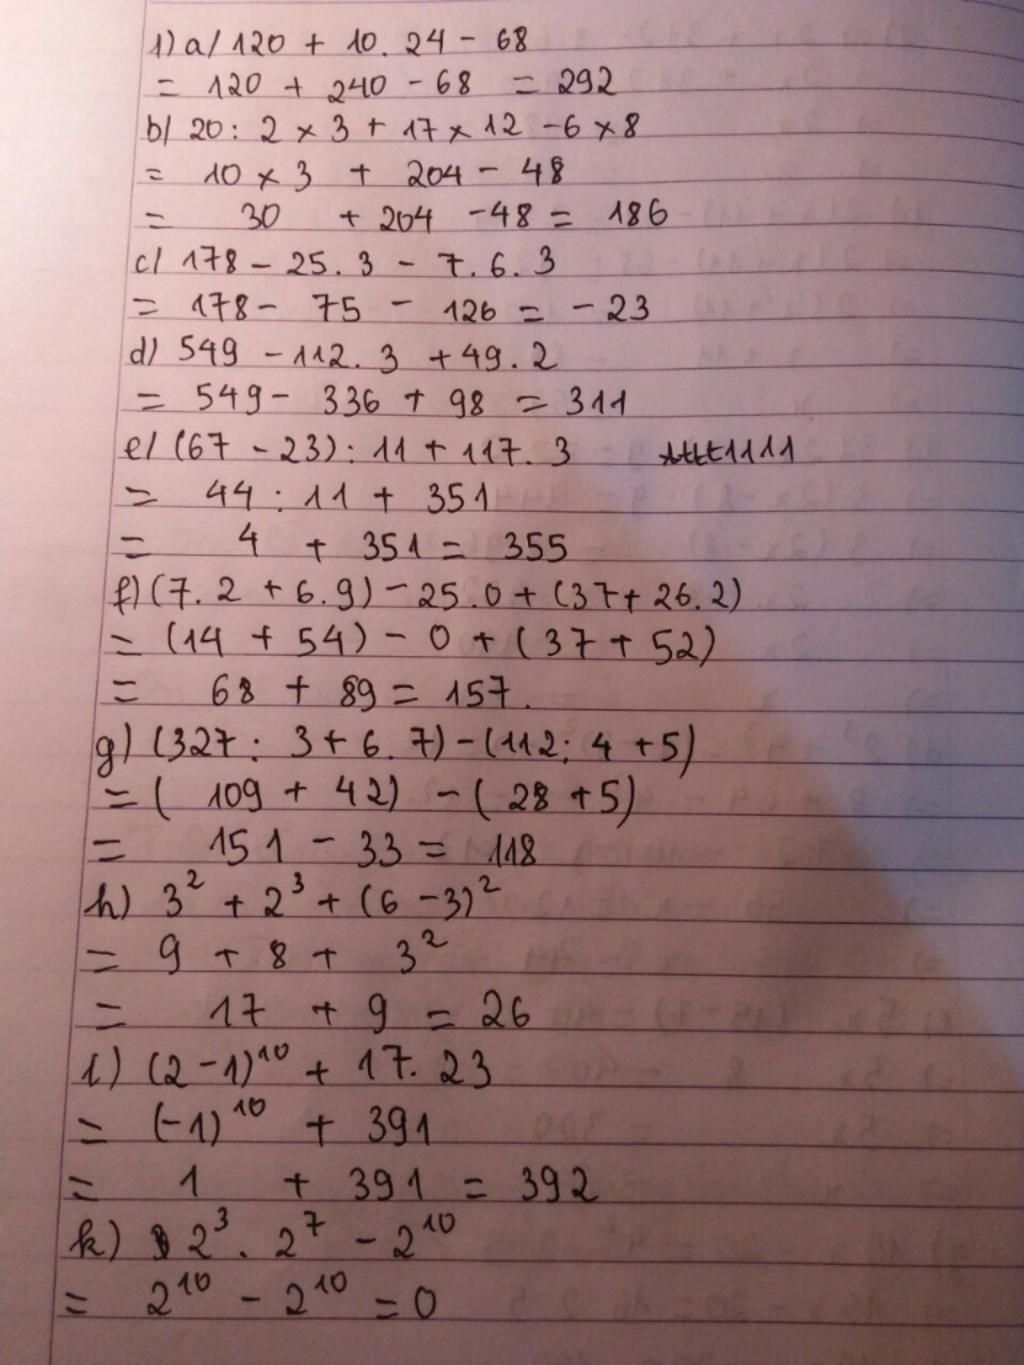 1) a/ 120 + 10. 24 - 68
= 120 + 240 - 68 = 292
b) 20: 2 × 3 + 17 × 12 - 6 × 8
= 10 × 3 + 204 - 48
= 30 + 204 - 48 = 186
c) 178 - 25. 3 - 7. 6. 3
= 178 - 75 - 126 = - 23
d) 549 - 112. 3 + 49. 2
= 549 - 336 + 98 = 311
e) (67 - 23) : 11 + 117. 3 1111
= 44 : 11 + 351
= 4 + 351 = 355
f) (7. 2 + 6. 9) - 25. 0 + (37 + 26. 2)
= (14 + 54) - 0 + (37 + 52)
= 68 + 89 = 157.
g) (327 : 3 + 6. 7) - (112 : 4 + 5)
= ( 109 + 42) - ( 28 + 5)
= 151 - 33 = 118
h) 3² + 2³ + (6 - 3)²
= 9 + 8 + 3²
= 17 + 9 = 26
i) (2 - 1)¹⁰ + 17. 23
= (-1)¹⁰ + 391
= 1 + 391 = 392
k) 2³ . 2⁷ - 2¹⁰
= 2¹⁰ - 2¹⁰ = 0